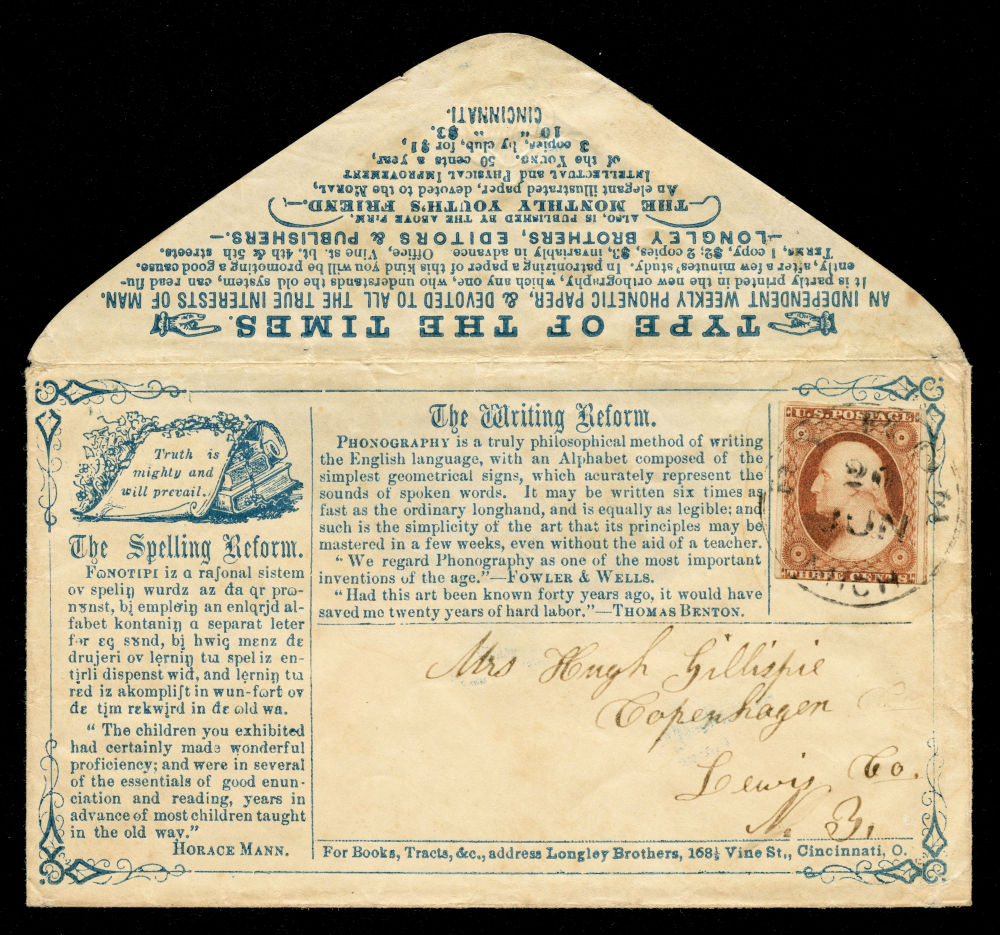 TYPE OF THE TIMES.
AN INDEPENDENT WEEKLY PHONETIC PAPER, & DEVOTED TO ALL THE TRUE INTERESTS OF MAN.
It is partly printed in the new orthography, which any one, who understands the old system, can read flu-
ently, after a few minutes' study. In patronizing a paper of this kind you will be promoting a good cause.
TERMS, 1 copy, $2; 2 copies, $3, invariably in advance Office, Vine st. bt. 4th & 5th streets.
—LONGLEY BROTHERS, EDITORS & PUBLISHERS.—
ALSO, IS PUBLISHED BY THE ABOVE FIRM,
—THE MONTHLY YOUTH'S FRIEND.—
An elegant illustrated paper, devoted to the MORAL,
INTELLECTUAL AND PHYSICAL IMPROVEMENT
of the YOUNG. 50 cents a year,
3 copies, by club, for $1,
10 " " $3.
CINCINNATI.
Truth is
mighty and
will prevail.
The Spelling Reform.
Fɷnotipi iz a raʃonal sistem
ov speliŋ wurdz az đa qr prɷ-
nɤnst, bį emplơiŋ an enlqrjd al-
fabet kontaniŋ a separat leter
for εç sɤnd, bį hwiç mεnz đε
drujeri ov lęrniŋ tɯ spel iz en-
tįrli dispenst wiđ, and lęrniŋ tɯ
rεd iz akompliʃt in wun-fɷrt ov
đε tįm rεkwįrd in đε ɷld wa.
" The children you exhibited
had certainly made wonderful
proficiency; and were in several
of the essentials of good enun-
ciation and reading, years in
advance of most children taught
in the old way."
HORACE MANN.
The Writing Reform.
PHONOGRAPHY is a truly philosophical method of writing
the English language, with an Alphabet composed of the
simplest geometrical signs, which acurately represent the
sounds of spoken words. It may be written six times as
fast as the ordinary longhand, and is equally as legible; and
such is the simplicity of the art that its principles may be
mastered in a few weeks, even without the aid of a teacher.
" We regard Phonography as one of the most important
inventions of the age."—FOWLER & WELLS.
"Had this art been known forty years ago, it would have
saved me twenty years of hard labor."—THOMAS BENTON.
U.S. POSTAGE
JUN
MICH
THREE CENTS
Mrs Hugh Gillispie
Copenhagen
Lewis Co.
N. Y.
For Books, Tracts, &c., address Longley Brothers, 168½ Vine St., Cincinnati, O.